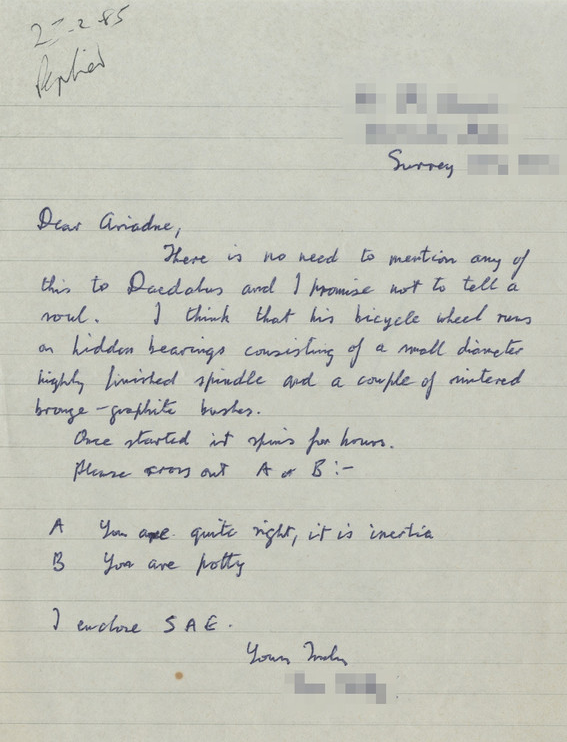 2 -2 -85
Replied
Surrey
Dear Ariadne,
There is no need to mention any of
this to Daedalus and I promise not to tell a
soul. I think that his bicycle wheel runs
on hidden bearings consisting of a small diameter
highly finished spindle and a couple of sintered
bronze-graphite bushes.
Once started it spins for hours.
Please cross out A or B :-
A You are quite right, it is inertia
B You are potty
I enclose S A E.
Yours Truly